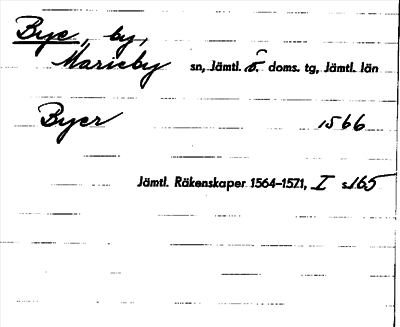 Bye, by,
Marieby sn, Jämtl. ö. doms. tg, Jämtl. län
Byer 1566
Jämtl. Räkenskaper 1564–1571, I s. 165